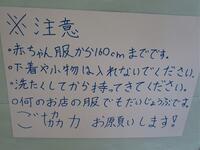 ※注意
・赤ちゃん服から160cmまでです。
・下着や小物は入れないでください。
・洗たくしてから持ってきてください。
・何のお店の服でもだいじょうぶです。
ご協力 お願いします!